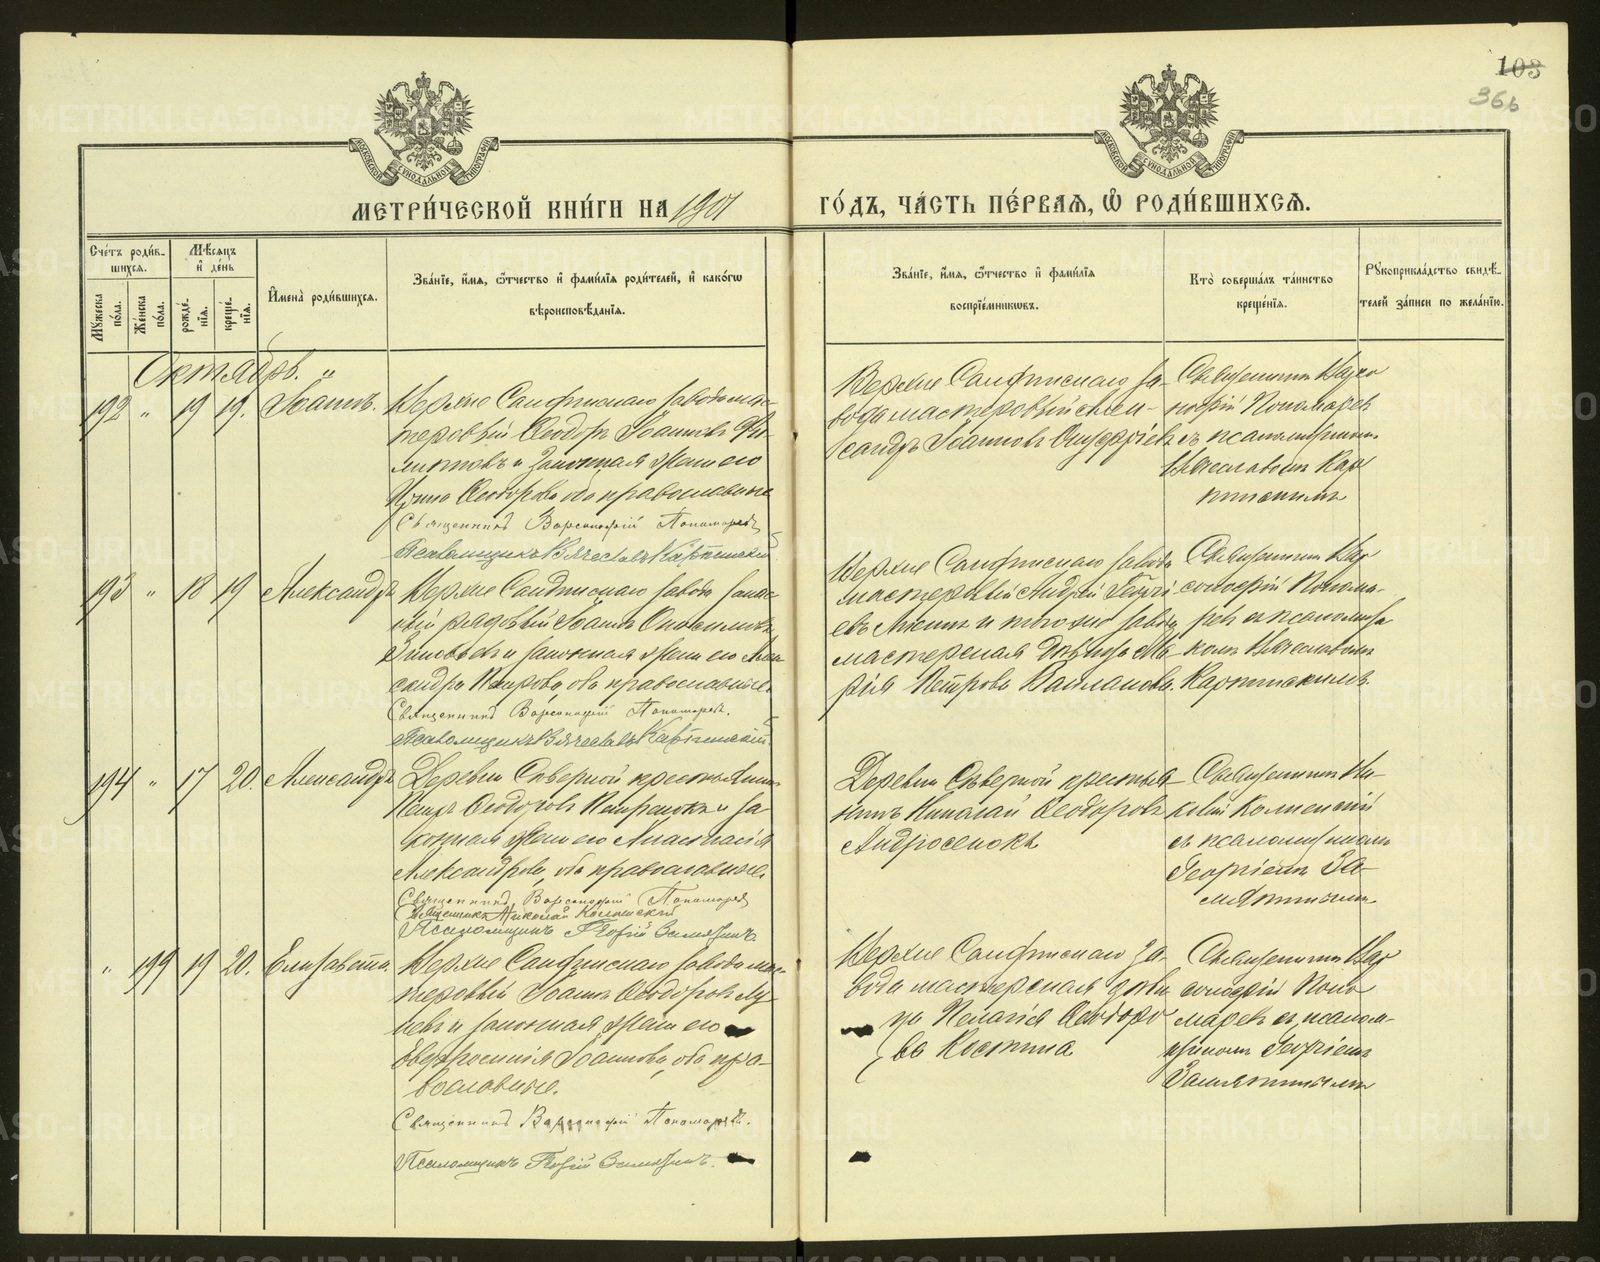 103
366
МОСКОВСКОЙ СѴНОДАЛЬНОЙ ТИПОГРАФІИ
МОСКОВСКОЙ СѴНОДАЛЬНОЙ ТИПОГРАФІИ
МЕТРИ́ЧЕСКОЙ КНИ́ГИ НА 1901
ГО́ДЪ, ЧА́СТЬ ПЕ́РВАѦ, Ѽ РОДИ́ВШИХСѦ.
Сче́тъ роди́в-
шихсѧ.
Мѣ́сѧцъ
и҆ де́нь
Мꙋ́жеска по́ла.
Же́нска по́ла.
рожде́-
нїѧ.
креще́-
нїѧ.
И҆мена̀ роди́вшихсѧ.
Зва́нїе, и҆́мѧ, ѻ҆́тчество и҆ фами́лїѧ роди́телей, и҆ како́гѡ
вѣроисповѣ́данїѧ.
Зва́нїе, и҆́мѧ, ѻ҆́тчество и҆ фами́лїѧ
воспрїе́мникѡвъ.
Кто̀ соверша́лъ та́инство
креще́нїѧ.
Рꙋкоприкла́дство свидѣ́-
телей за́писи по жела́нїю.
Октябрь. "
192 " 19 19. Іоаннъ.
Верхне Саифинскаго завода мас-
теровый Ѳеодоръ Іоанновъ
и законная жена его
Ирина Ѳеодорова, оба православные
Священникъ Варсонофій Пономаревъ
Псаломщикъ Вячеславъ Карпинскій
Верхне Саифинскаго за-
вода мастеровый Алек-
сандръ Іоанновъ
Священникъ Варсо-
нофій Пономаревъ
съ псаломщикомъ
Вячеславомъ Кар-
пинскимъ
193 " 18 19 Александръ
Верхне Саифинскаго завода запас-
ный рядовый Іоаннъ
Зиновьевъ и законная жена его Алек-
сандра Петрова, оба православные.
Священникъ Варсонофій Пономаревъ.
Псаломщикъ Вячеславъ Карпинскій.
Верхне Саифинскаго завода
мастеровый Андрей Георгі-
евъ и того же завода
мастерская девица Ма-
рія Петрова
Священникъ Вар-
сонофій Понома-
ревъ съ псаломщи-
комъ Вячеславомъ
Карпинскимъ.
194 " 17 20. Александръ
Деревни Северной крестьянинъ
Петръ Ѳеодоровъ Петренокъ и за-
конная жена его Анастасія
Александрова, оба православные.
Священникъ Варсонофій Пономаревъ
Священникъ Николай
Псаломщикъ Георгій Замятинъ.
Деревни Северной крестья-
нинъ Николай Ѳеодоровъ
Андросенокъ
Священникъ Ни-
колай
съ псаломщикомъ
Георгіемъ За-
мятинымъ
" 199 19 20. Елизавета.
Верхне Саифинскаго завода мас-
теровый Іоаннъ Ѳеодоровъ
и законная жена его
Евфросинія Іоаннова, оба пра-
вославные.
Священникъ Варсонофій Пономаревъ.
Псаломщикъ Георгій Замятинъ.
Верхне Саифинскаго за-
вода мастерская деви-
ца Пелагія Ѳеодоро-
ва Костина
Священникъ Вар-
сонофій Поно-
маревъ съ псалом-
щикомъ Георгіемъ
Замятинымъ
METRIKI.GASO-URAL.RU